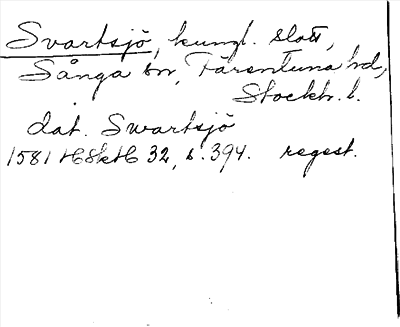 Svartsjö, kungl. slott,
Sånga sn, Färentuna hd,
Stockh. l.
dat. Swartsjö
1581 HSH 32, s. 394. regest.